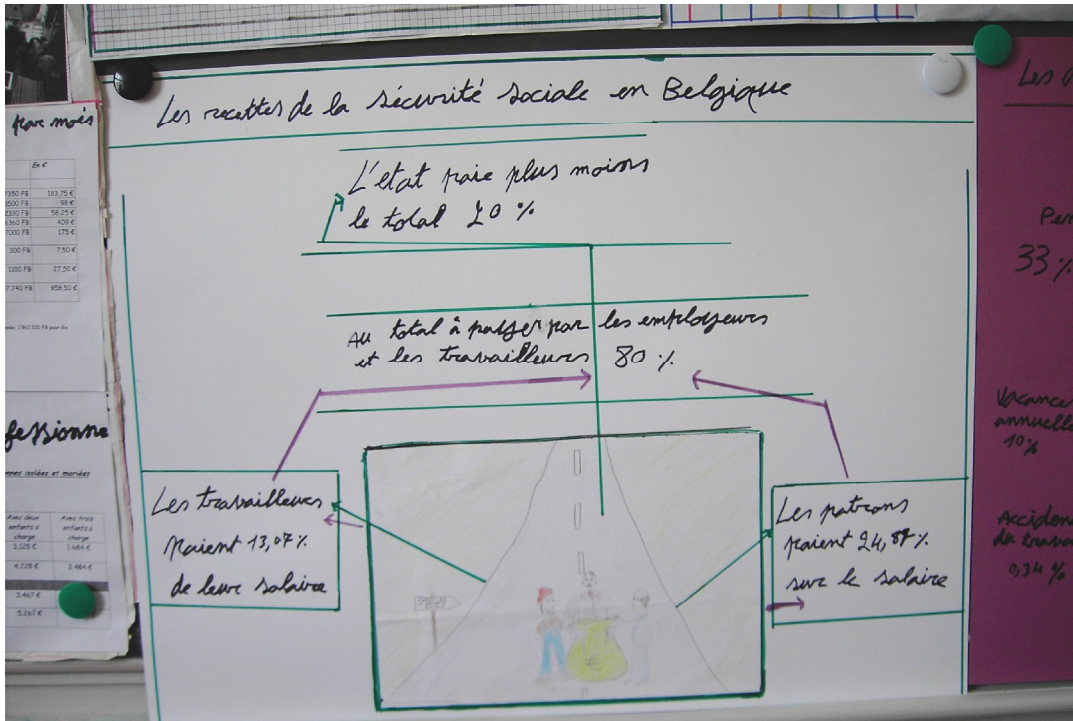 Les recettes de la sécurité sociale en Belgique
L'état paie plus moins
le total 20 %
Au total à payer par les employeurs
et les travailleurs 80 %
Les travailleurs
paient 13,07 %
de leur salaire
Les patrons
paient 24,87 %
sur le salaire
par mois
En €
7350 FB 183,75 €
3500 FB 98 €
2330 FB 58,25 €
6360 FB 409 €
7000 FB 175 €
300 FB 7,50 €
1100 FB 27,50 €
7.740 FB 956,50 €
fessionne
nnes isolées et mariées
Avec deux
enfants à
charge
Avec trois
enfants à
charge
3.128 € 1.684 €
4.228 € 3.484 €
3.467 €
5.267 €
Les
Per
33 %
Vacance
annuelle
10 %
Acciden
du trava
0,34 %